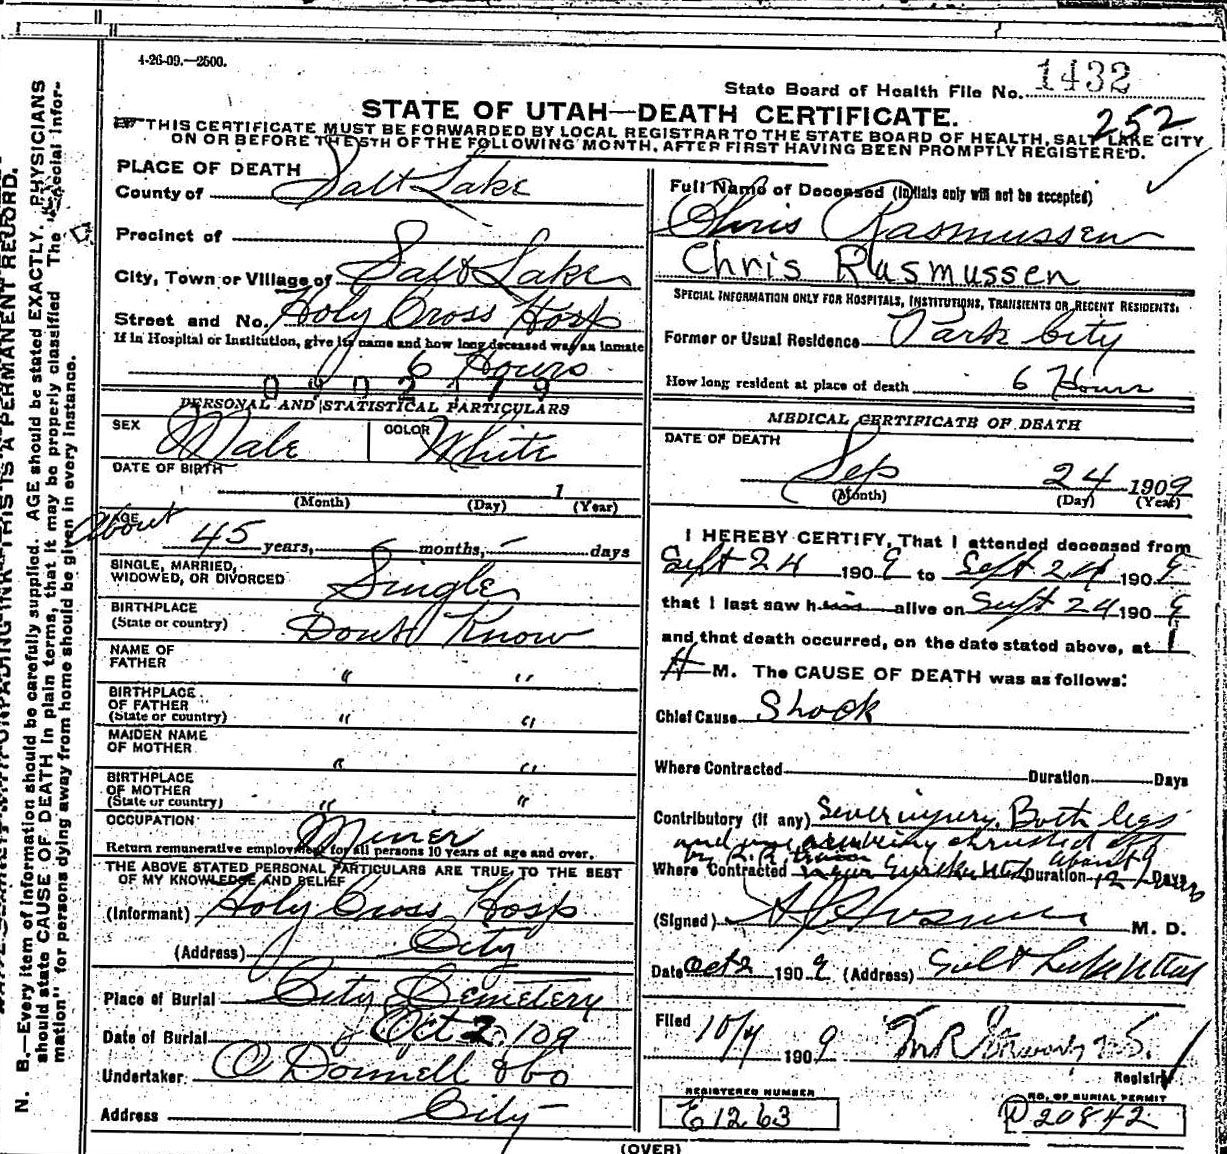 4-26-09.—2500.
State Board of Health File No. 1432
STATE OF UTAH—DEATH CERTIFICATE.
252
THIS CERTIFICATE MUST BE FORWARDED BY LOCAL REGISTRAR TO THE STATE BOARD OF HEALTH, SALT LAKE CITY
ON OR BEFORE THE 5TH OF THE FOLLOWING MONTH, AFTER FIRST HAVING BEEN PROMPTLY REGISTERED.
PLACE OF DEATH
County of Salt Lake
Precinct of
City, Town or Village of Salt Lake
Street and No. Holy Cross Hosp
If in Hospital or Institution, give its name and how long deceased was an inmate
6 Hours
PERSONAL AND STATISTICAL PARTICULARS
SEX Male COLOR White
DATE OF BIRTH
1
(Month) (Day) (Year)
AGE About 45 years, - months, - days
SINGLE, MARRIED,
WIDOWED, OR DIVORCED Single
BIRTHPLACE
(State or country) Dont Know
NAME OF
FATHER " "
BIRTHPLACE
OF FATHER
(State or country) " "
MAIDEN NAME
OF MOTHER " "
BIRTHPLACE
OF MOTHER
(State or country) " "
OCCUPATION Miner
Return remunerative employment for all persons 10 years of age and over.
THE ABOVE STATED PERSONAL PARTICULARS ARE TRUE TO THE BEST
OF MY KNOWLEDGE AND BELIEF
(Informant) Holy Cross Hosp
(Address) City
Place of Burial City Cemetery
Date of Burial Oct 2 109
Undertaker O Donnell & Co
Address City
Full Name of Deceased (Initials only will not be accepted)
Chris Rasmussen
Chris Rasmussen
SPECIAL INFORMATION ONLY FOR HOSPITALS, INSTITUTIONS, TRANSIENTS OR RECENT RESIDENTS.
Former or Usual Residence Park City
How long resident at place of death 6 Hours
MEDICAL CERTIFICATE OF DEATH
DATE OF DEATH
Sep 24 1909
(Month) (Day) (Year)
I HEREBY CERTIFY, That I attended deceased from
Sept 24 1909 to Sept 24 1909
that I last saw him alive on Sept 24 1909
and that death occurred, on the date stated above, at 1
A M. The CAUSE OF DEATH was as follows:
Chief Cause Shock
Where Contracted Duration Days
Contributory (if any) Sever injury. Both legs
and one arm being chrushed off
by R.R.
Where Contracted near Duration about 12 Days
(Signed) M. D.
Date Oct 2 1909 (Address) Salt Lake Utah
Filed 10/4 1909
Registrar
REGISTERED NUMBER
E1263
NO. OF BURIAL PERMIT
D20842
(OVER)
N. B.—Every item of information should be carefully supplied. AGE should be stated EXACTLY. PHYSICIANS
should state CAUSE OF DEATH in plain terms, that it may be properly classified The "Special Infor-
mation" for persons dying away from home should be given in every instance.
UNFADING INK—THIS IS A PERMANENT RECORD.